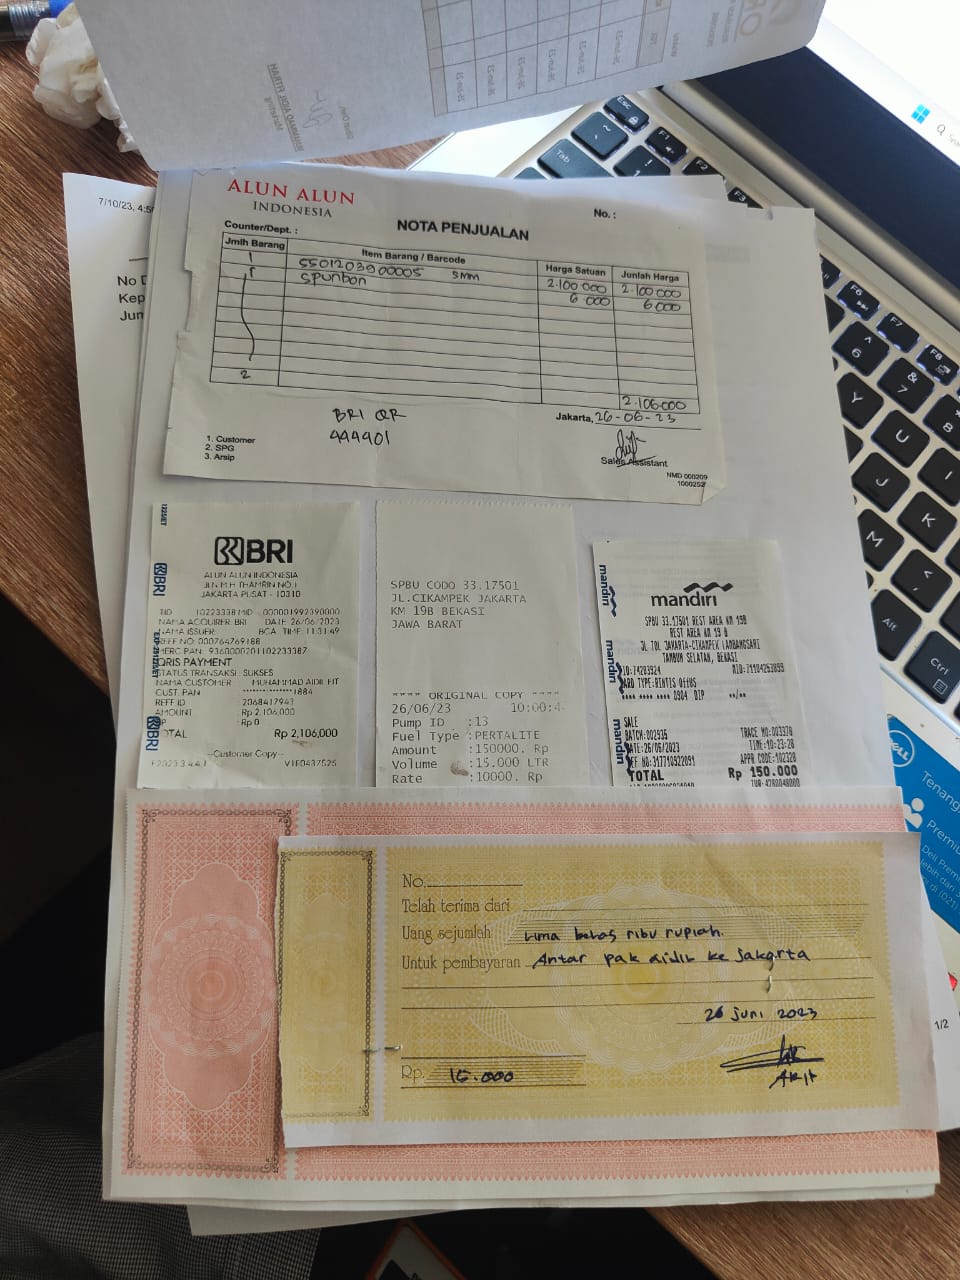 7/10/23, 4:5
No D
Kep
Jun
ALUN ALUN
INDONESIA
NOTA PENJUALAN
No. :
Counter/Dept. :
Jmlh Barang Item Barang / Barcode Harga Satuan Jumlah Harga
1 5501203900005 SMM 2.100 000 2.100 000
1 Spunbon 6 000 6 000
2
2.106.000
BRI QR
444901
Jakarta, 26-06-23
1. Customer
2. SPG
3. Arsip
Sales Assistant
NMD 000209
1000252
BRI
ALUN ALUN INDONESIA
JLN M.H THAMRIN NO.1
JAKARTA PUSAT - 10310
TID 10223338 MID 000001992390000
NAMA ACQUIRER: BRI DATE 26/06/2023
NAMA ISSUER: BCA TIME 11:31:49
REFF NO: 000764769188
MERC PAN: 9360000201102233387
QRIS PAYMENT
STATUS TRANSAKSI: SUKSES
NAMA CUSTOMER MUHAMMAD AIDIL FIT
CUST. PAN ***************1884
REFF ID 2068417943
AMOUNT Rp 2,106,000
Rp 0
TOTAL Rp 2,106,000
--Customer Copy--
SPBU CODO 33.17501
JL.CIKAMPEK JAKARTA
KM 19B BEKASI
JAWA BARAT
**** ORIGINAL COPY ****
26/06/23 10:00:4
Pump ID :13
Fuel Type :PERTALITE
Amount :150000. Rp
Volume :15.000 LTR
Rate :10000. Rp
mandiri
SPBU 33.17501 REST AREA KM 19
REST AREA KM 19 B
JL TOL JAKARTA-CIKAMPEK LAMBANGSARI
TAMBUN SELATAN, BEKASI
ID:74203924 MID:71104263099
CARD TYPE:BINTIS OffUS
**** **** **** 0904 DIP **/**
SALE
BATCH:002935 TRACE NO:003370
DATE:26/06/2023 TIME:10:23:20
REF NO:317710922091 APPR CODE:102320
TOTAL Rp 150.000
No.
Telah terima dari
Uang sejumlah Lima belas ribu rupiah.
Untuk pembayaran Antar pak aidil ke jakarta
26 juni 2023
Rp. 15.000
1/2
DELL
Tenang
Premi
Esc
Tab
F1
F2
F3
F6
F7
F8
6
7
8
Y
U
I
J
K
M
Alt
Ctrl